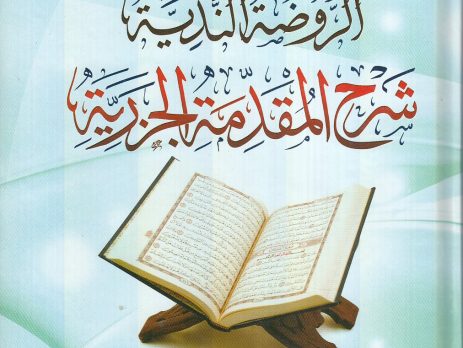 الروضة الندية
شَرْحُ المُقَدِّمَةِ الجَزَرِيَّةِ